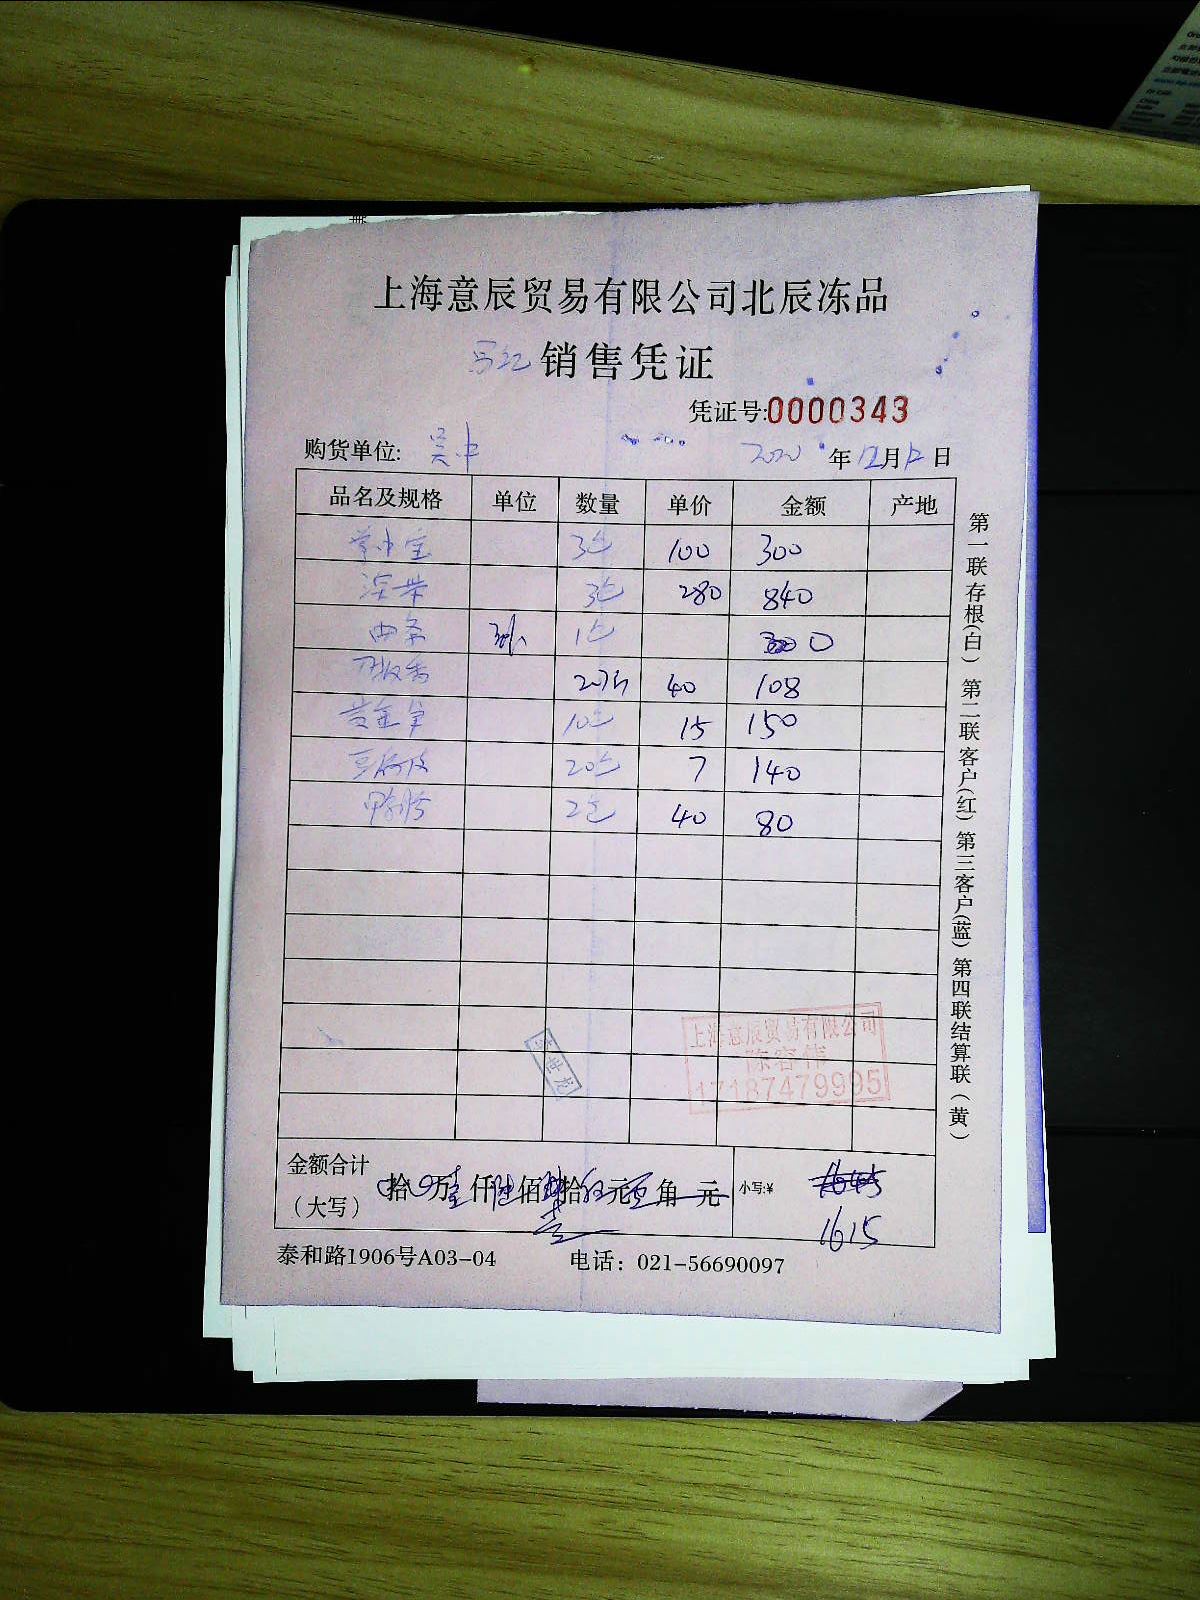 上海意辰贸易有限公司北辰冻品
销售凭证
凭证号:0000343
购货单位: 吴中 2020年12月12日
品名及规格 单位 数量 单价 金额 产地
3包 100 300
3包 280 840
1包 0
40 108
黄金 10包 15 150
豆腐皮 20包 7 140
鸭肠 2包 40 80
上海意辰贸易有限公司
陈容伟
17187479995
金额合计
(大写) 拾 万 壹 仟 陆 佰 壹 拾 伍 元 角 元 小写:¥
1615
泰和路1906号A03-04 电话: 021-56690097
第一联存根(白) 第二联客户(红) 第三客户(蓝) 第四联结算联(黄)